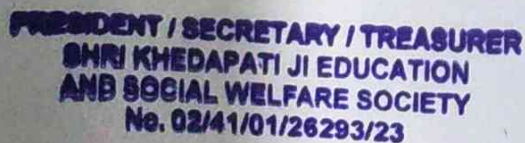 PRESIDENT / SECRETARY / TREASURER
SHRI KHEDAPATI JI EDUCATION
AND SOCIAL WELFARE SOCIETY
No. 02/41/01/26293/23